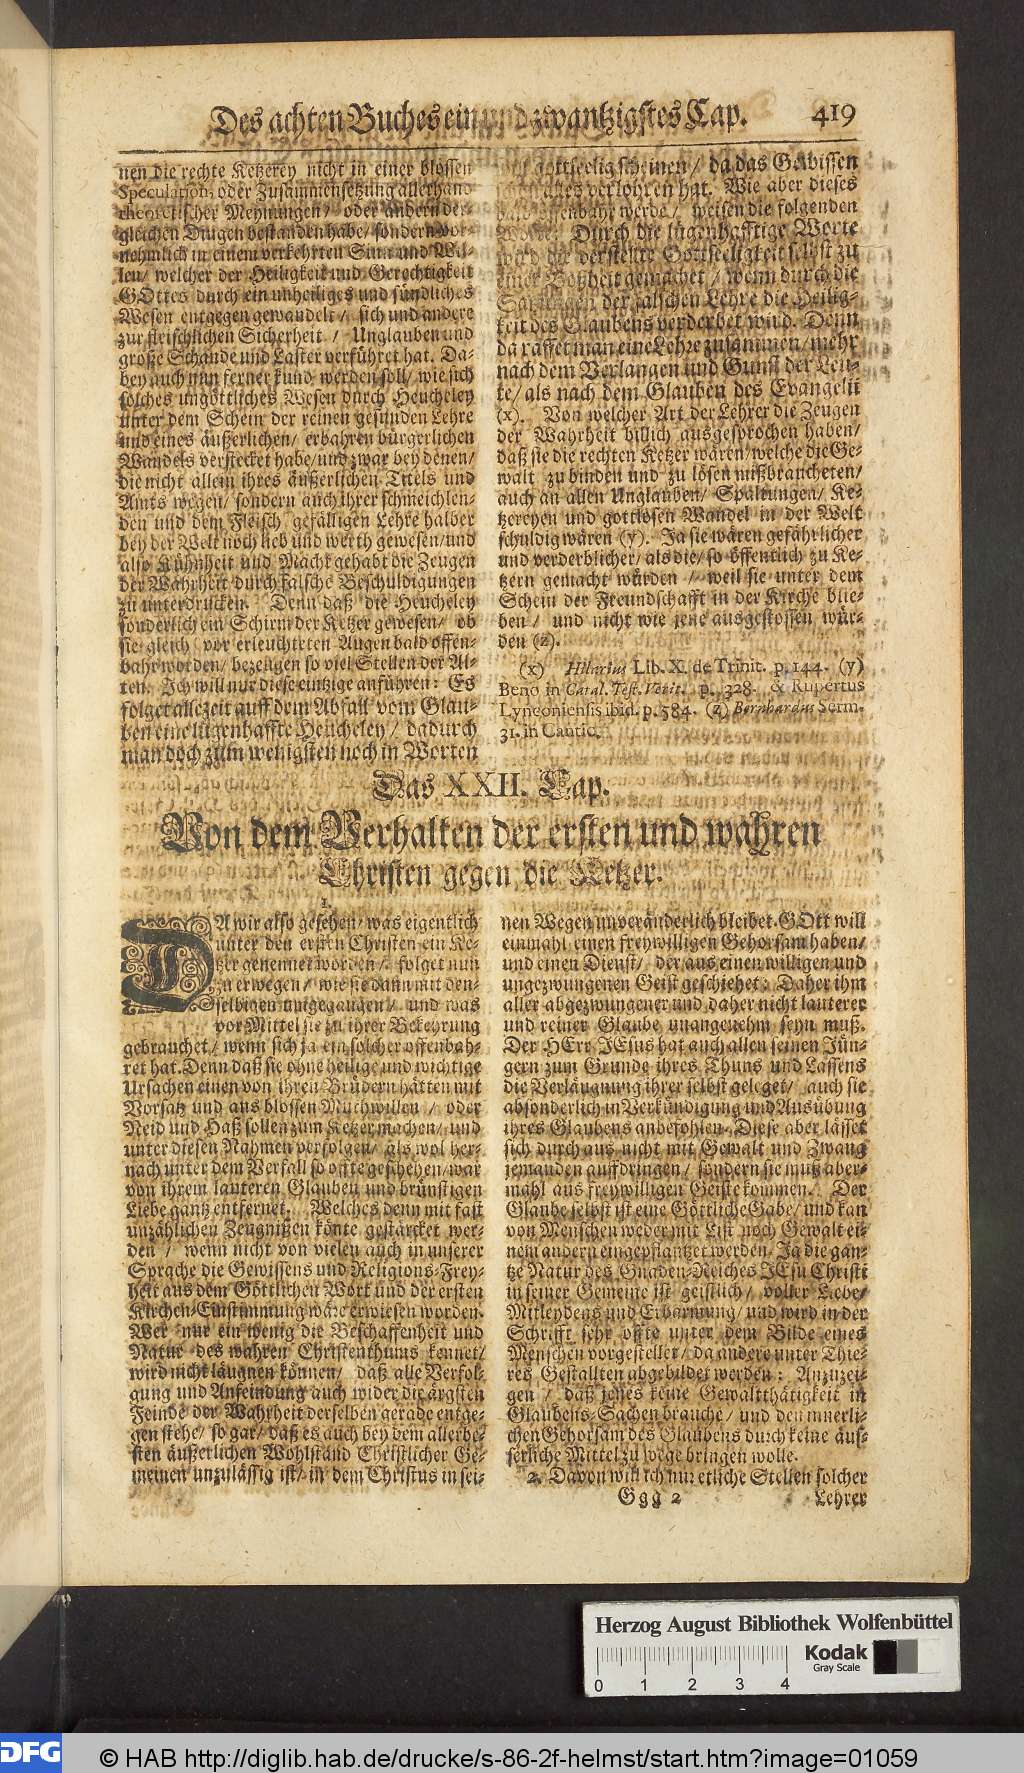 Des achten Buches ein und zwantzigstes Cap. 419
nen die rechte Ketzerey nicht in einer blossen
Speculation, oder Zusammensetzung allerhand
theoretischer Meynungen/ oder andern der-
gleichen Dingen bestanden habe/ sondern vor-
nehmlich in einem verkehrten Sinn und Wil-
len/ welcher der Heiligkeit und Gerechtigkeit
GOttes durch ein unheiliges und sündliches
Wesen entgegen gewandelt/ sich und andere
zur fleischlichen Sicherheit/ Unglauben und
große Schande und Laster verführet hat. Da-
bey auch nun ferner kund werden soll/ wie sich
solches ungöttliches Wesen durch Heucheley
unter dem Schein der reinen gesunden Lehre
und eines äußerlichen/ erbahren bürgerlichen
Wandels verstecket habe/ und zwar bey denen/
die nicht allein ihres äußerlichen Tituls und
Amts wegen/ sondern auch ihrer schmeichlen-
den und dem Fleisch gefälligen Lehre halber
bey der Welt noch lieb und werth gewesen/ und
also Kühnheit und Macht gehabt die Zeugen
der Wahrheit durch falsche Beschuldigungen
zu unterdrücken. Denn daß die Heucheley
sonderlich ein Schirm der Ketzer gewesen/ ob
sie gleich vor erleuchteten Augen bald offen-
bahr worden/ bezeugen so viel Stellen der Al-
ten. Ich will nur diese eintzige anführen: Es
folget allezeit auff dem Abfall vom Glau-
ben eine lügenhaffte Heucheley/ dadurch
man doch zum wenigsten noch in Worten
gottseelig scheinen/ da das Gewissen
alles verlohren hat. Wie aber dieses
bald offenbahr werde/ weisen die folgenden
Worte: Durch die lügenhafftige Worte
wird die verstellte Gottseeligkeit selbst zu
einer Boßheit gemachet/ wenn durch die
Satzungen der falschen Lehre die Heilig-
keit des Glaubens verderbet wird. Denn
da raffet man eine Lehre zusammen/ mehr
nach dem Verlangen und Gunst der Leu-
te/ als nach dem Glauben des Evangelii
(x). Von welcher Art der Lehrer die Zeugen
der Wahrheit billich ausgesprochen haben/
daß sie die rechten Ketzer wären/ welche die Ge-
walt zu binden und zu lösen mißbraucheten/
auch an allen Unglauben/ Spaltungen/ Ke-
tzereyen und gottlosen Wandel in der Welt
schuldig wären (y). Ja sie wären gefährlicher
und verderblicher/ als die/ so öffentlich zu Ke-
tzern gemacht würden/ weil sie unter dem
Schein der Freundschafft in der Kirche blie-
ben/ und nicht wie jene ausgestossen wür-
den (z).
(x) Hilarius Lib. X. de Trinit. p. 144. (y)
Beno in Catal. Test. Verit. p. 328. & Rupertus
Lyneoniensis ibid. p. 584. (z) Bernhardus Serm.
31. in Cantic.
Das XXII. Cap.
Von dem Verhalten der ersten und wahren
Christen gegen die Ketzer.
1.
DA wir also gesehen/ was eigentlich
unter den ersten Christen ein Ke-
tzer genennet worden/ folget nun
zu erwegen/ wie sie dann mit den-
selbigen umgegangen/ und was
vor Mittel sie zu ihrer Bekehrung
gebrauchet/ wenn sich ja ein solcher offenbah-
ret hat. Denn daß sie ohne heilige und wichtige
Ursachen einen von ihren Brüdern hätten mit
Vorsatz und aus blossen Muthwillen/ oder
Neid und Haß sollen zum Ketzer machen/ und
unter diesen Nahmen verfolgen/ als wol her-
nach unter dem Verfall so offte geschehen/ war
von ihrem lauteren Glauben und brünstigen
Liebe gantz entfernet. Welches denn mit fast
unzählichen Zeugnißen könte gestärcket wer-
den/ wenn nicht von vielen auch in unserer
Sprache die Gewissens und Religions-Frey-
heit aus dem Göttlichen Wort und der ersten
Kirchen-Einstimmung wäre erwiesen worden.
Wer nur ein wenig die Beschaffenheit und
Natur des wahren Christenthums kennet/
wird nicht läugnen können/ daß alle Verfol-
gung und Anfeindung auch wider die ärgsten
Feinde der Wahrheit derselben gerade entge-
gen stehe/ so gar/ daß es auch bey dem allerbe-
sten äußerlichen Wohlstand Christlicher Ge-
meinen unzulässig ist/ in dem Christus in sei-
nen Wegen unveränderlich bleibet. GOtt will
einmahl einen freywilligen Gehorsam haben/
und einen Dienst/ der aus einen willigen und
ungezwungenen Geist geschiehet: Daher ihm
aller abgezwungener und daher nicht lauterer
und reiner Glaube unangenehm seyn muß.
Der HErr JEsus hat auch allen seinen Jün-
gern zum Grunde ihres Thuns und Lassens
die Verläugnung ihrer selbst geleget/ auch sie
absonderlich in Verkündigung und Ausübung
ihres Glaubens anbefohlen. Diese aber lässet
sich durch aus nicht mit Gewalt und Zwang
jemanden auffdringen/ sondern sie muß aber-
mahl aus freywilligen Geiste kommen. Der
Glaube selbst ist eine Göttliche Gabe/ und kan
von Menschen weder mit List noch Gewalt ei-
nem andern eingepflantzet werden. Ja die gan-
tze Natur des Gnaden-Reiches JEsu Christi
in seiner Gemeine ist geistlich/ voller Liebe/
Mitleydens und Erbarmung/ und wird in der
Schrifft sehr offte unter dem Bilde eines
Menschen vorgestellet/ da andere unter Thie-
res Gestallten abgebildet werden: Anzuzei-
gen/ daß jenes keine Gewaltthätigkeit in
Glaubens-Sachen brauche/ und den innerli-
chen Gehorsam des Glaubens durch keine äus-
serliche Mittel zu wege bringen wolle.
2. Davon will ich nur etliche Stellen solcher
Ggg 2 Lehrer
Herzog August Bibliothek Wolfenbüttel
Kodak
Gray Scale
0 1 2 3 4
DFG © HAB http://diglib.hab.de/drucke/s-86-2f-helmst/start.htm?image=01059